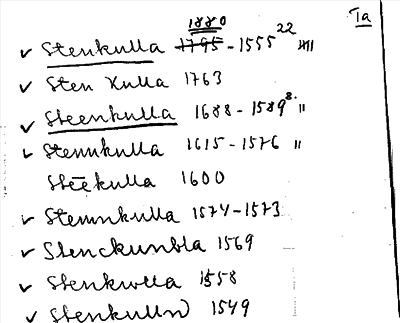 Ta
1880
✓ Stenkulla 1795 - 1555 22 ||||
✓ Sten Kulla 1763
✓ Steenkulla 1688 - 1589 8. ||
✓ Stennkulla 1615 - 1576 ||
Stēēkulla 1600
✓ Stemnkulla 1574 - 1573
✓ Stenckunbla 1569
✓ Stenkwlla 1558
✓ Stenkulln 1549